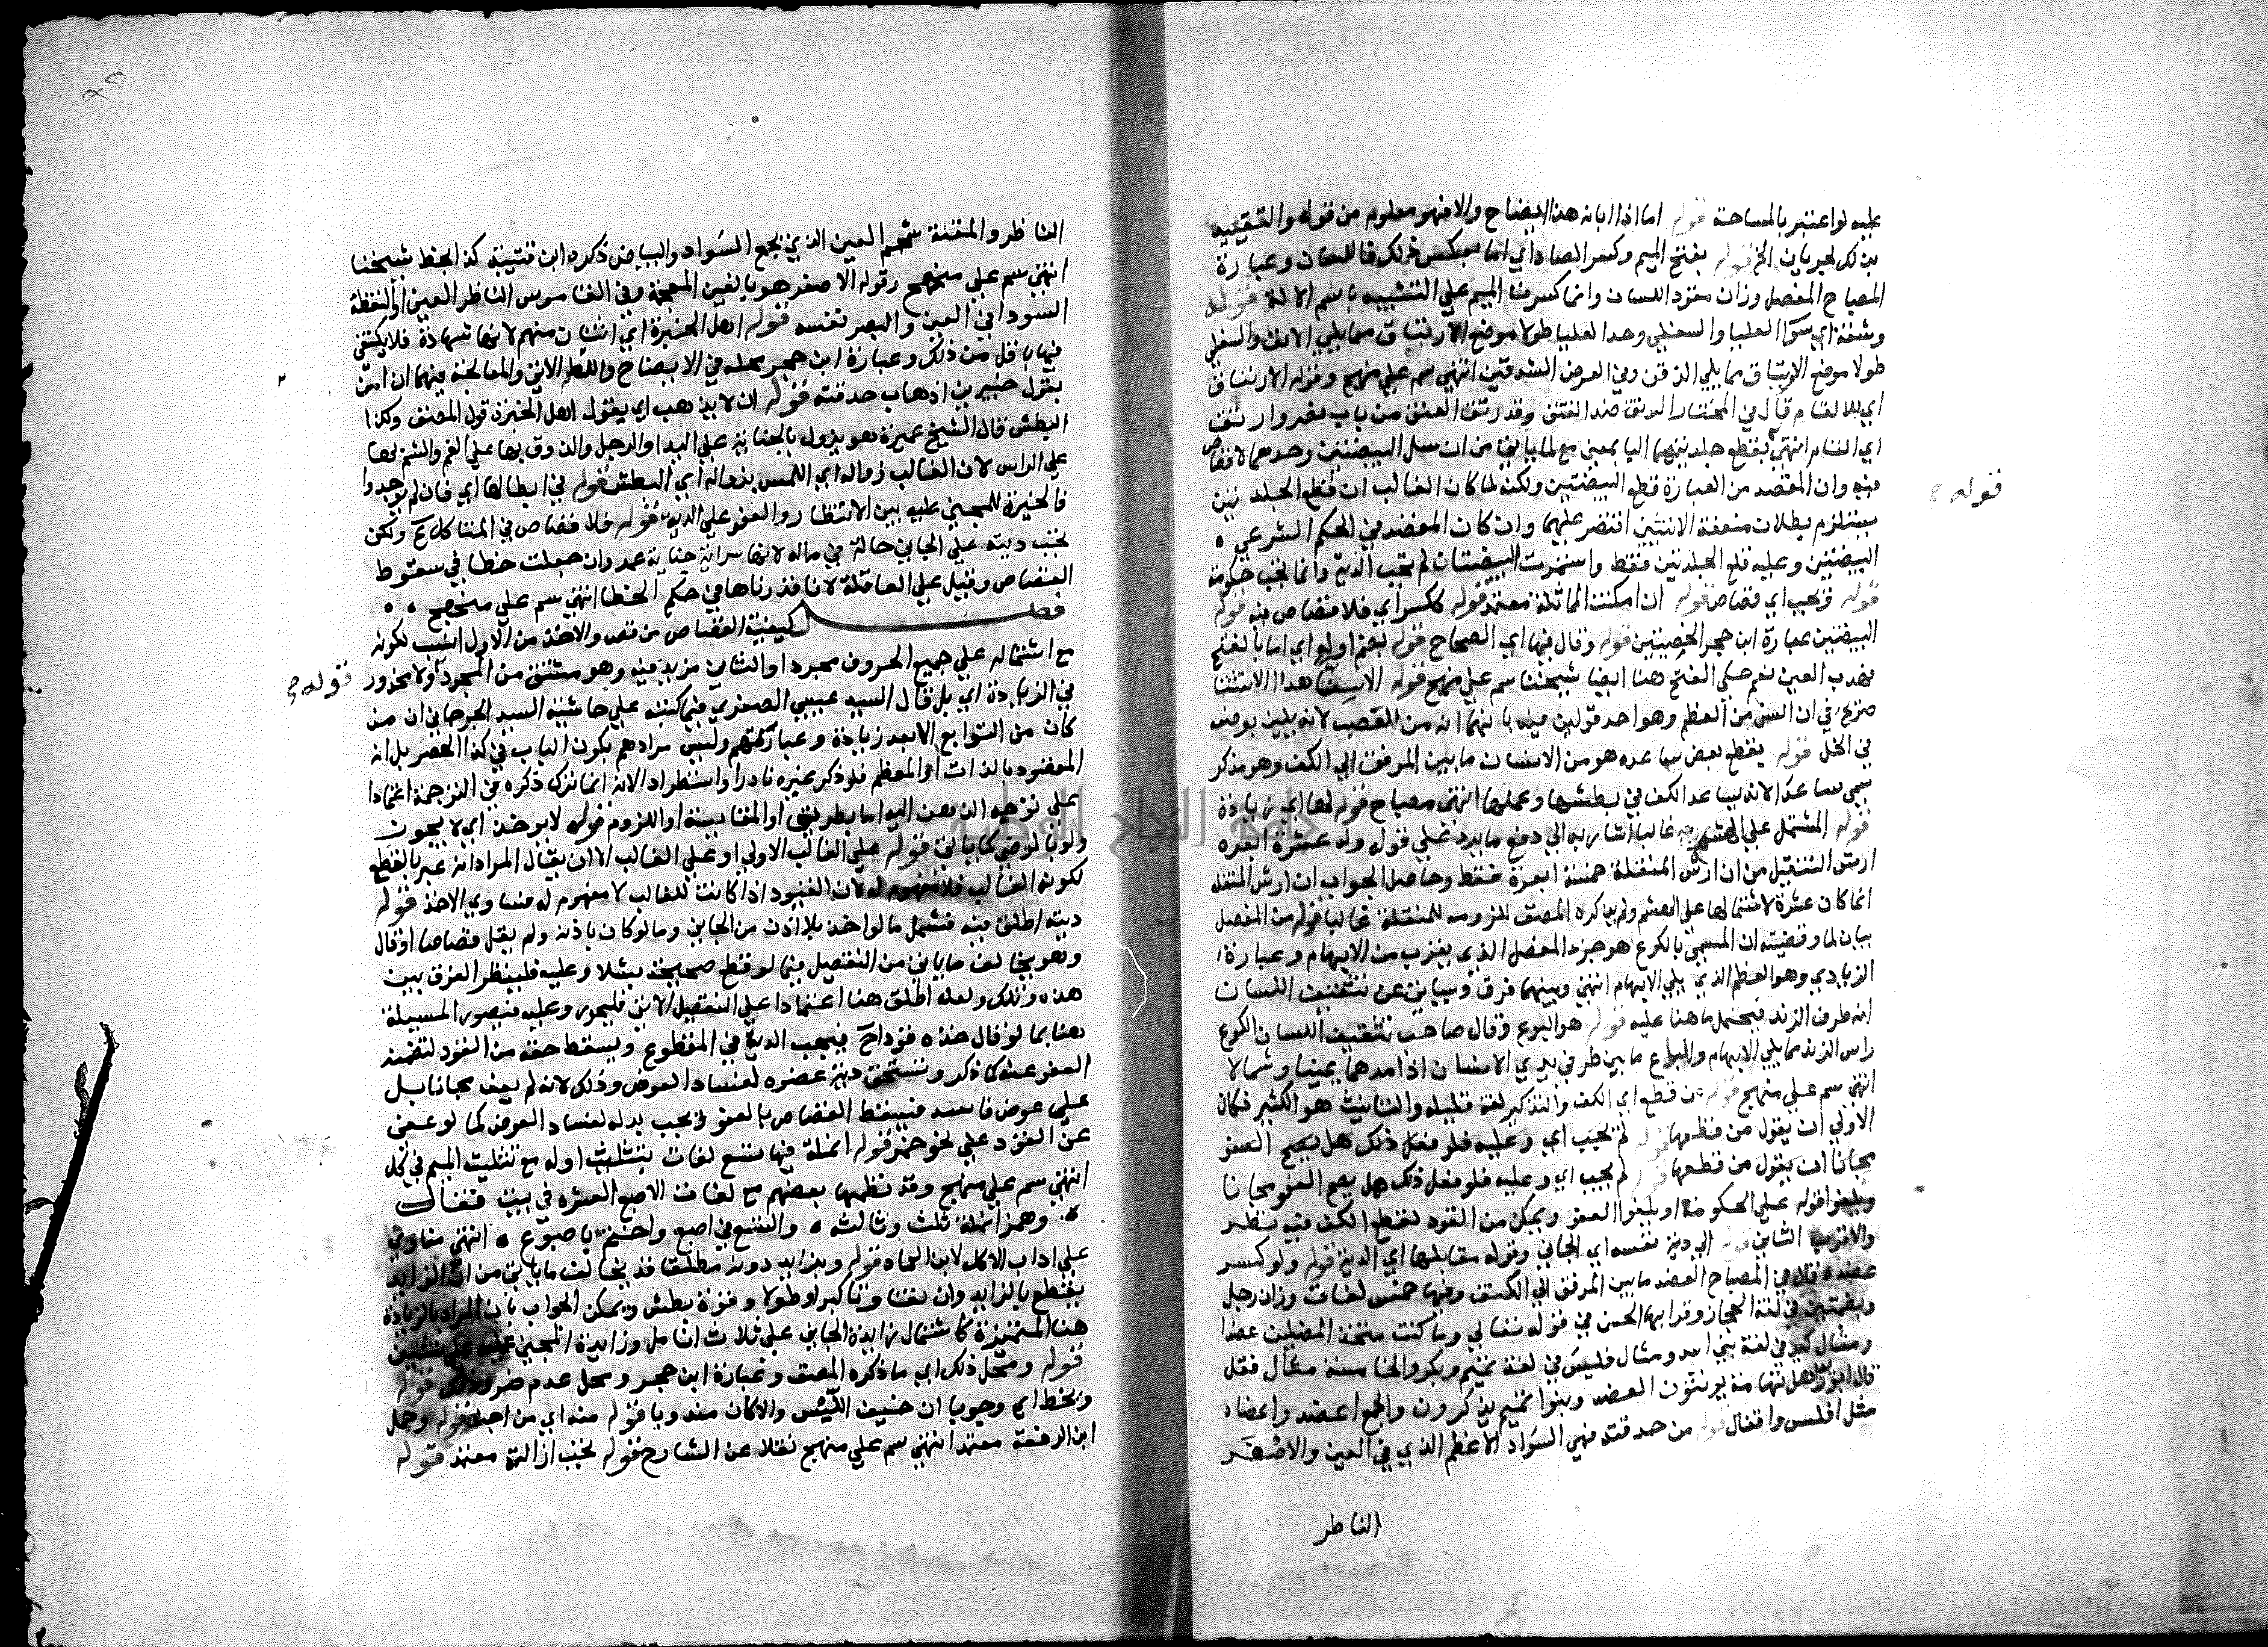 عليه لو اعتبر بالمساحة قوله اما اذا ابانه هذا ايضاح والا فهو معلوم من قوله والتقييد
بذلك لجريان الخ قوله بفتح الميم وكسر الصاد اي اما بعكس ذلك فاللسان وعبارة
المصباح المفصل وزان مقود اللسان وانما كسرت الميم على التشبيه باسم الالة قوله
وشفة اي سوا العليا والسفلي وحد العليا طولا موضع الارتتاق مما يلي الانف والسفلي
طولا موضع الارتتاق مما يلي الذقن وفي العرض الشدقين انتهى سم على منهج وقوله الارتتاق
اي للالتئام قال في المختار الرتق ضد الفتق وقد رتق الفتق من باب نصر وارتتق
اي التئام انتهى بقطع جلدتيهما اليا بمعنى مع لما ياتي من ان سل البيضتين وحدهما لا قصاص
فيه وان المقصد من العبارة قطع البيضتين ولكنه لما كان الغالب ان قطع الجلدتين
يستلزم بطلان منفعة الانثيين اقتصر عليهما وان كان المقصد في الحكم الشرعي ه
البيضتين وعليه فلو قطع الجلدتين فقط واستمرت البيضتان لم تجب الدية وانما تجب حكومة
قوله وتجب اي قصاص قوله ان امكنت المماثلة معتمد قوله ككسر اي فلا قصاص فيه قوله
البيضتين عبارة ابن حجر الخصيتين قوله وقال فيها اي الصحاح قوله بضم اوله اي اما بالفتح
فهدب العين نعم حكي الفتح هنا ايضا شيخنا سم على منهج قوله الا سن هذا الاستثنا
صريح في ان السن من العظم وهو احد قولين فيه ثانيهما انه من العصب لانه يلين بوضعه
في الخل قوله يقطع بعض ساعده هو من الانسان ما بين المرفق الى الكف وهو مذكر
سمي ساعدا لانه يساعد الكف في بطشها وعملها انتهى مصباح قوله لها اي زيادة
قوله المشتمل على الهشم غالبا اشار به الى دفع ما يرد على قوله وله عشرة ابعره
ارش التنقيل من ان ارش المنقلة خمسة ابعرة فقط وحاصل الجواب ان ارش المنقلة
انما كان عشرة لاشتمالها على الهشم ولم يذكره المصنف للزومه للمنقلة غالبا قوله من المفصل
بيان لما وقضيته ان المسمى بالكوع هو جزء المفصل الذي يقرب من الابهام وعبارة
الزيادي وهو العظم الذي يلي الابهام انتهى وبينهما فرق وسياتي عن تثقيف اللسان
انه طرف الزند فيحمل ما هنا عليه قوله هو البوع وقال صاحب تثقيف اللسان الكوع
راس الزند مما يلي الابهام والبوع ما بين طرفي يدي الانسان اذا مدهما يمينا وشمالا
انتهى سم على منهج قوله من قطع اي الكف والتذكير لغة قليله والتانيث هو الكثير فكان
الاولى ان يقول من قطعها قوله لم يجب اي وعليه فلو فعل ذلك هل يصح العفو
مجانا ان يقول من قطعها قوله لم يجب اي وعليه فلو فعل ذلك هل يصح العفو مجانا
ويلغو قوله على الحكومة او يلغو العفو ويمكن من القود لقطع الكف فيه نظر
والاقرب الثاني قوله الى دية نفسه اي الجاني وقوله مقابلها اي الدية قوله ولو كسر
عضده قال في المصباح العضد ما بين المرفق الى الكتف وفيها خمس لغات وزان رجل
وبضمتين في لغة الحجاز وقرا بها الحسن في قوله تعالى وما كنت متخذ المضلين عضدا
ومثال كبد في لغة بني اسد ومثال فلس في لغة تميم وبكر والخامسة مثال قفل
قال ابو زيد اهل تهامة يؤنثون العضد وبنوا تميم يذكرون والجمع اعضد واعضاد
مثل افلس واقفال قوله من حدقته فهي السواد الاعظم الذي في العين والاصغر
الناظر
قوله
الناظر والمقلة شحم العين الذي يجمع السواد والبياض ذكره ابن قتيبة كذا بخط شيخنا
انتهى سم على منهج وقوله الاصغر هو بالغين المعجمة وفي القاموس الناظر العين او النقطة
السودا في العين والبصر نفسه قوله اهل الخبرة اي اثنان منهم لانها شهادة فلا يكتفي
فيها باقل من ذلك وعبارة ابن حجر محله في الايضاح واللطم الاتي والمعالجة فيهما ان امن
بقول خبيرين اذهاب حدقته قوله ان لا يذهب اي بقول اهل الخبرة قول المصنف وكذا
البطش قال الشيخ عميرة هو يزول بالجناية على اليد او الرجل والذوق بها على الفم والشم بها
على الراس لان الغالب زواله اي اللمس بزواله اي البطش قوله في ابطالها اي فان لم يوجدوا
فالخيرة للمجني عليه بين الانتظار والعفو على الدية قوله فلا قصاص في المتاكل ولكن
تجب ديته على الجاني حالة في ماله لانها سراية جناية عمد وان جعلت خطا في سقوط
القصاص وقيل على العاقلة لانا قدرناها في حكم الخطا انتهى سم على منهج ه ه
فصل كيفية القصاص من قص والاخذ من الاول انسب لكونه
مع اشتماله على جميع الحروف مجردا والثاني مزيد فيه وهو مشتق من المجرد ولا محذور
في الزيادة اي بل قال السيد عيسى الصفوي فيما كتبه على حاشية السيد الجرجاني ان منه
كان من التوابع لا يعد زيادة وعبارتهم وليس مرادهم بكون الباب في كذا الحصر بل انه
المقصود بالذات او المعظم فلو ذكر غيره نادرا واستطراد الا انه انما ترك ذكره في الترجمة اعتمادا
على توجه الذهن اليه اما بطريق او المقايسة او اللزوم قوله لا يوخذ اي لا يجوز
ولو بالرضى كما ياتي قوله على الغالب الاولى او على الغالب الا ان يقال المراد انه عبر بالقطع
لكونه الغالب فلا مفهوم له لان القيود اذا كانت للغالب لا مفهوم له مساوي الاخذ قوله
ديته اطلق فيه فشمل ما لو اخذ بلا اذن من الجاني وما لو كان باذنه ولم يقل قصاصا او قال
وهو يخالف ما ياتي من التفصيل فيما لو قطع صحيحة بشلا وعليه فلينظر الفرق بين
هذه وتلك ولعله اطلق هنا اعتمادا على التفصيل الاتي فليحرر وعليه فتصور المسيلة
هنا بما لو قال خذه قودا فيجب الدية في المقطوع ويسقط حقه من القود لتضمنه
العفو عنه كما ذكر ويستحق دية عضوه لفساد العوض وذلك لانه لم يعف مجانا بل
على عوض فاسد فيسقط القصاص بالعفو ويجب بدله لفساد العوض كما لو عفى
عن القود على نحو خمر قوله انملة فيها تسع لغات بتثليث اوله مع تثليث الميم في كل
انتهى سم على منهج وقد نظمها بعضهم مع لغات الاصبع العشره في بيت فقال
ه وهمز انملة ثلث وثالثه ه والتسع في اصبع واختم باصبوع ه انتهى مناوي
على اداب الاكل لابن العماد قوله وبزايد دونه مطلقا قد يخالف ما ياتي من ان الزايد
يقطع بالزايد وان تفاوتا كبرا وطولا وقوة بطش ويمكن الجواب بان المراد بالزيادة
هنا المتميزة كاشتمال زايدة الجاني على ثلاث انامل وزايدة المجني عليه على ثنتين
قوله ومحل ذلك اي ما ذكره المصنف وعبارة ابن حجر ومحل عدم ضرر ذلك قوله
ويخط اي وجوبا ان خيف اللبس والا كان مندوبا قوله منه اي من اجله قوله وحمل
ابن الرفعة معتمد انتهى سم على منهج نقلا عن الشارح قوله تجب ازالته معتمد قوله
قوله